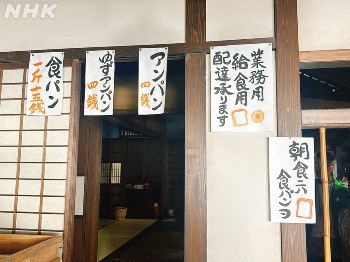 NHK
業務用
給食用
配達承ります
アンパン
四銭
ゆずアンパン
四銭
食パン
一斤十五銭
朝食ニ
食パンヲ